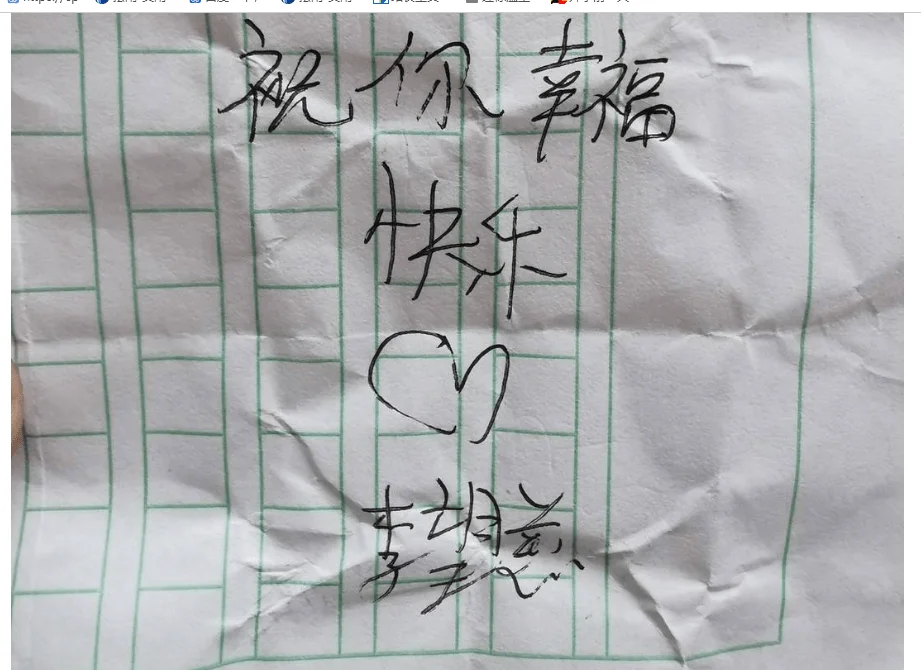 祝你幸福
快乐